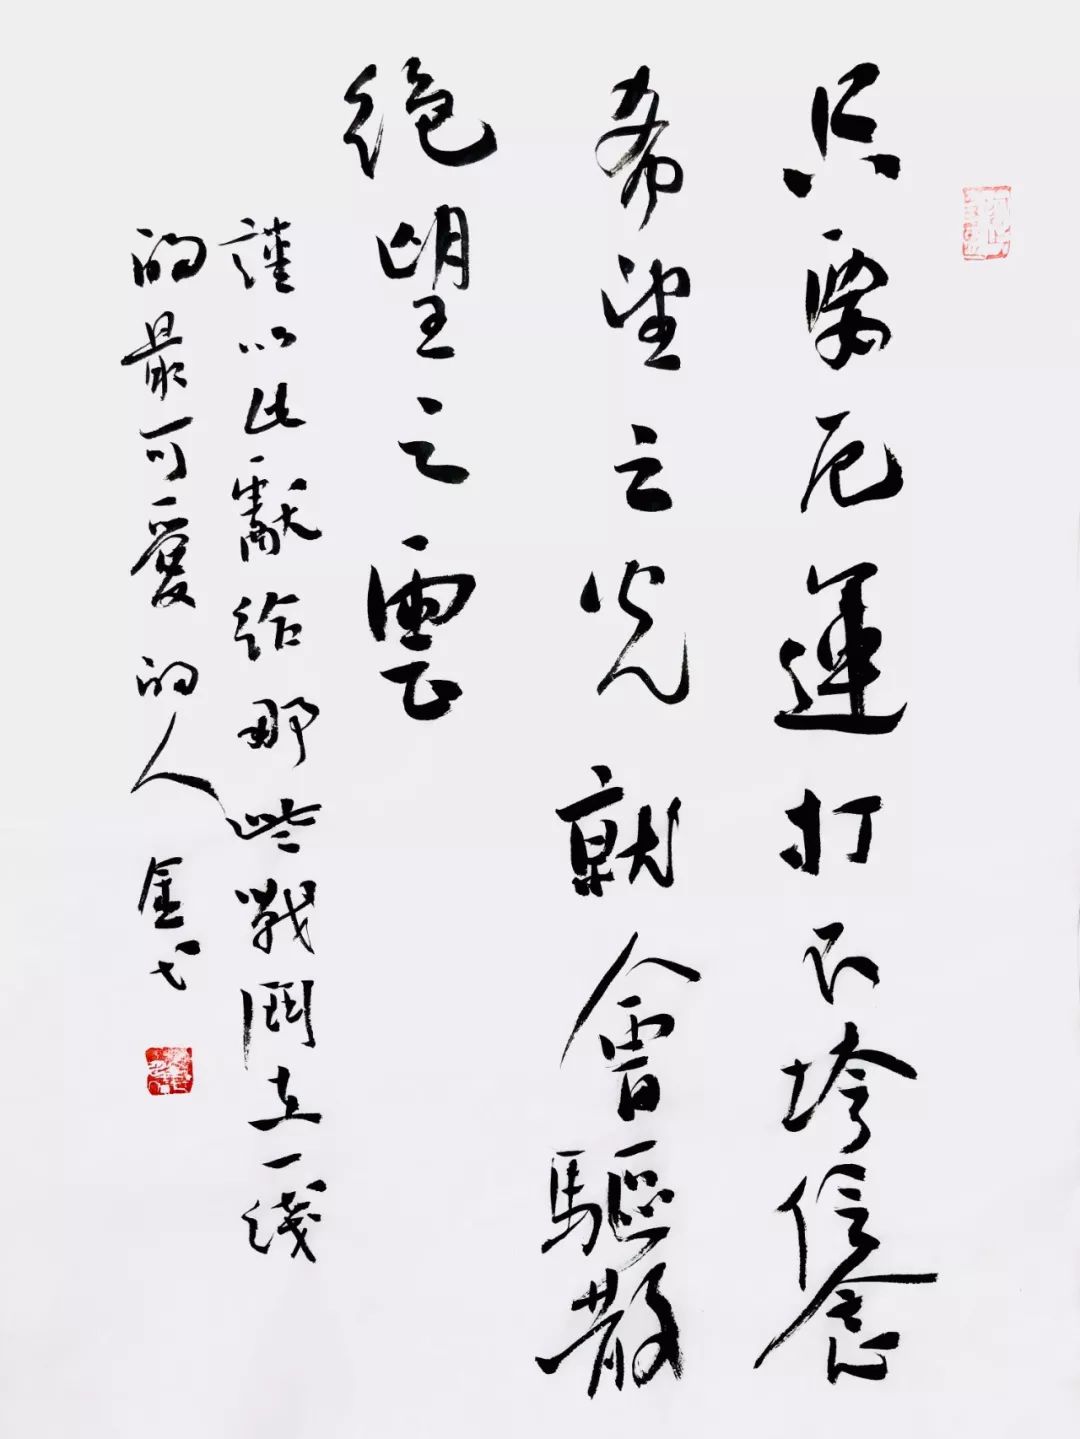 只要厄運打不垮信念
希望之光就會驅散
絶望之雲
謹以此獻給那些戰鬪在一綫
的最可愛的人 金弋